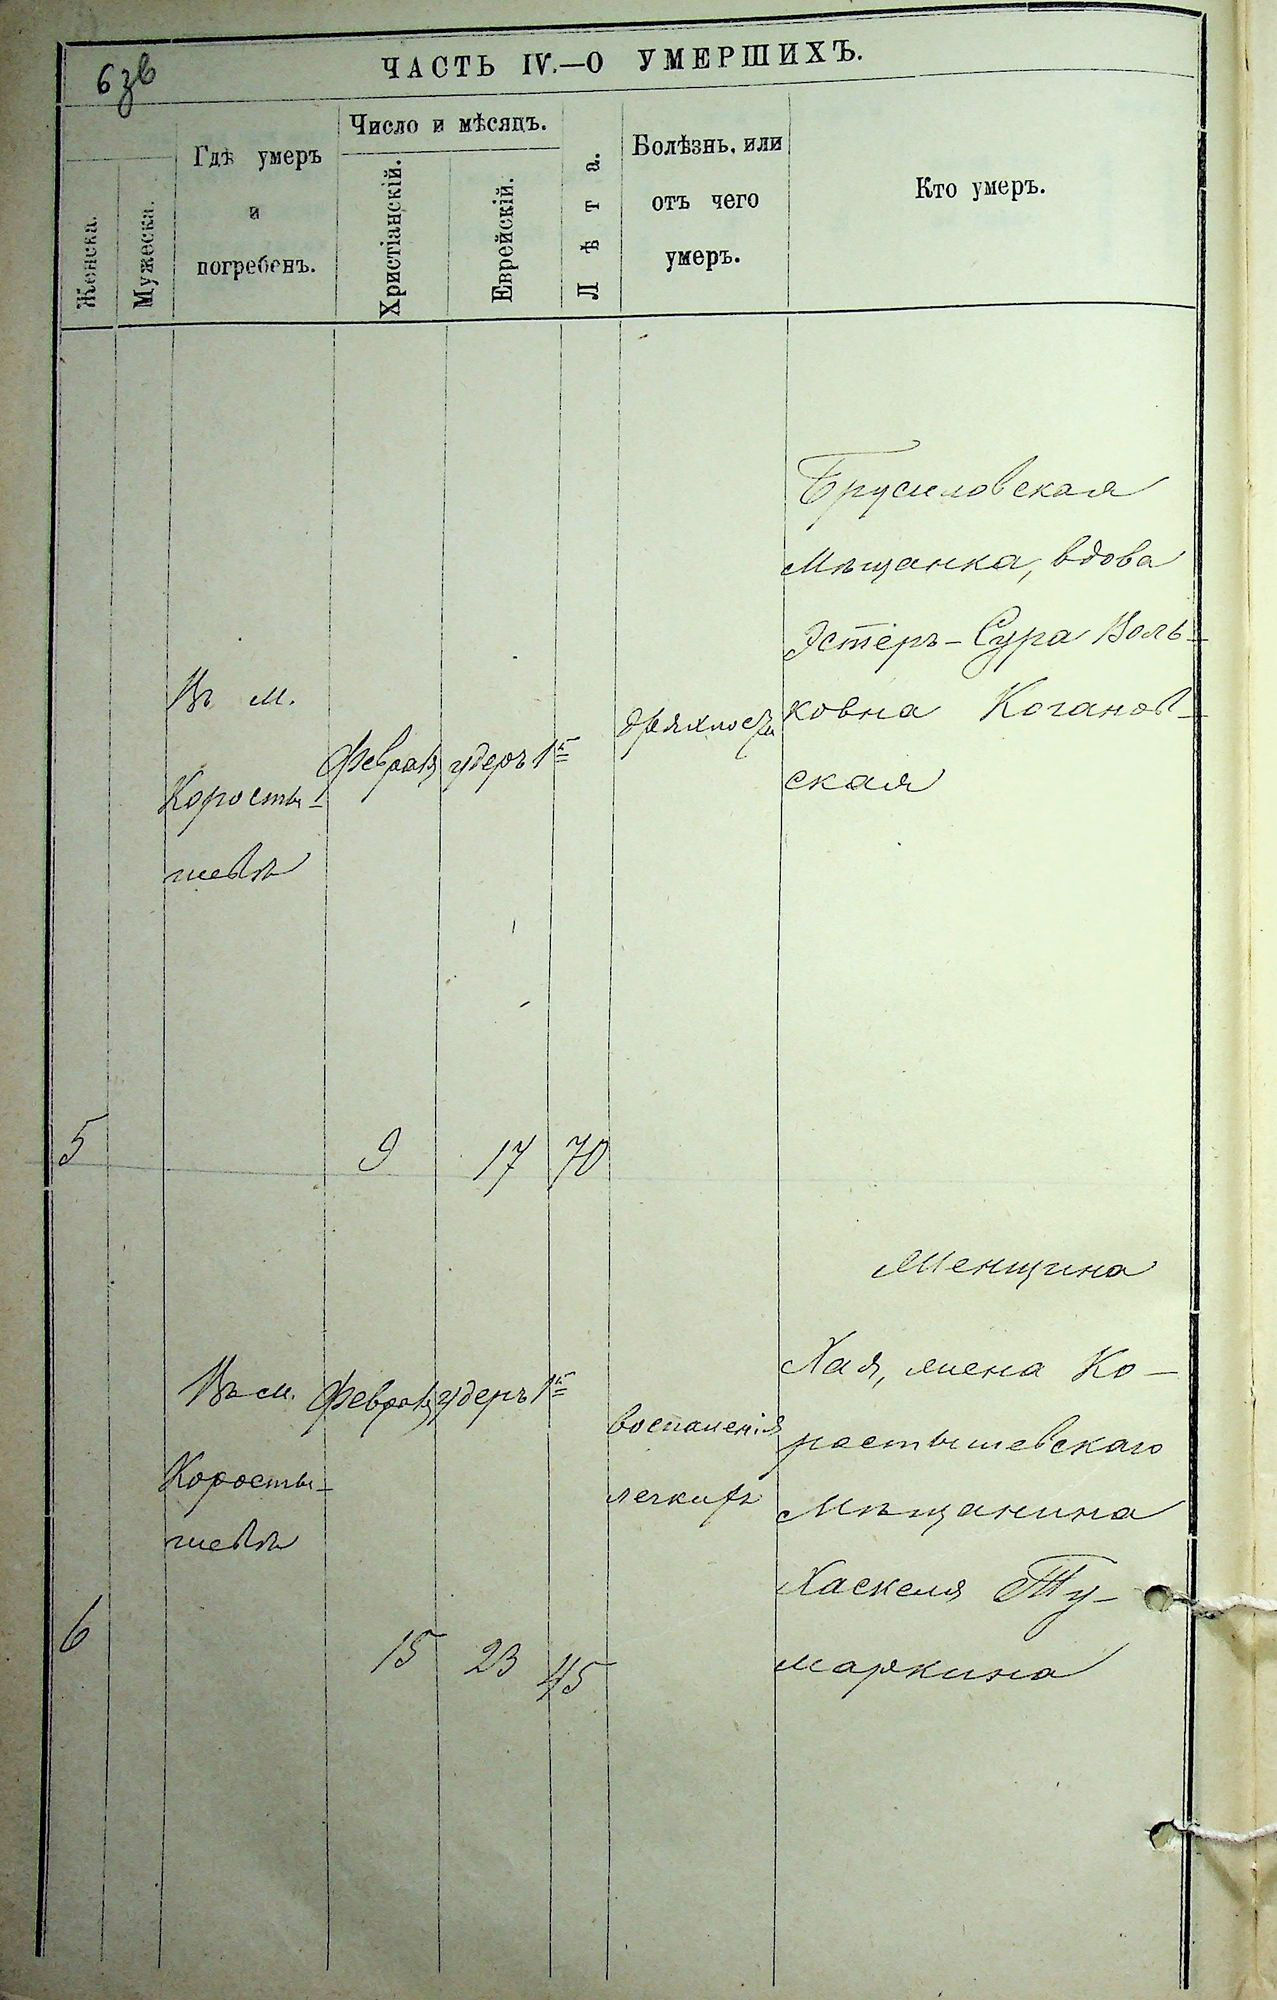 6зв
ЧАСТЬ IV.—О УМЕРШИХЪ.
Женска.
Мужеска.
Гдѣ умеръ
и
погребенъ.
Число и мѣсяцъ.
Христіанскій.
Еврейскій.
Лѣта.
Болѣзнь, или
отъ чего
умеръ.
Кто умеръ.
5
Въ м.
Коросты-
шевѣ
Февраля
9
Адеръ 1й
17
70
дряхлости
Брусиловская
Мѣщанка, вдова
Эстеръ-Сура Воль-
ковна Коганов-
ская
6
Въ м.
Коросты-
шевѣ
Февраля
15
Адеръ 1й
23
45
воспаленія
легкихъ
Женщина
Хая, жена Ко-
ростышевскаго
Мѣщанина
Хаскеля Ту-
маркина